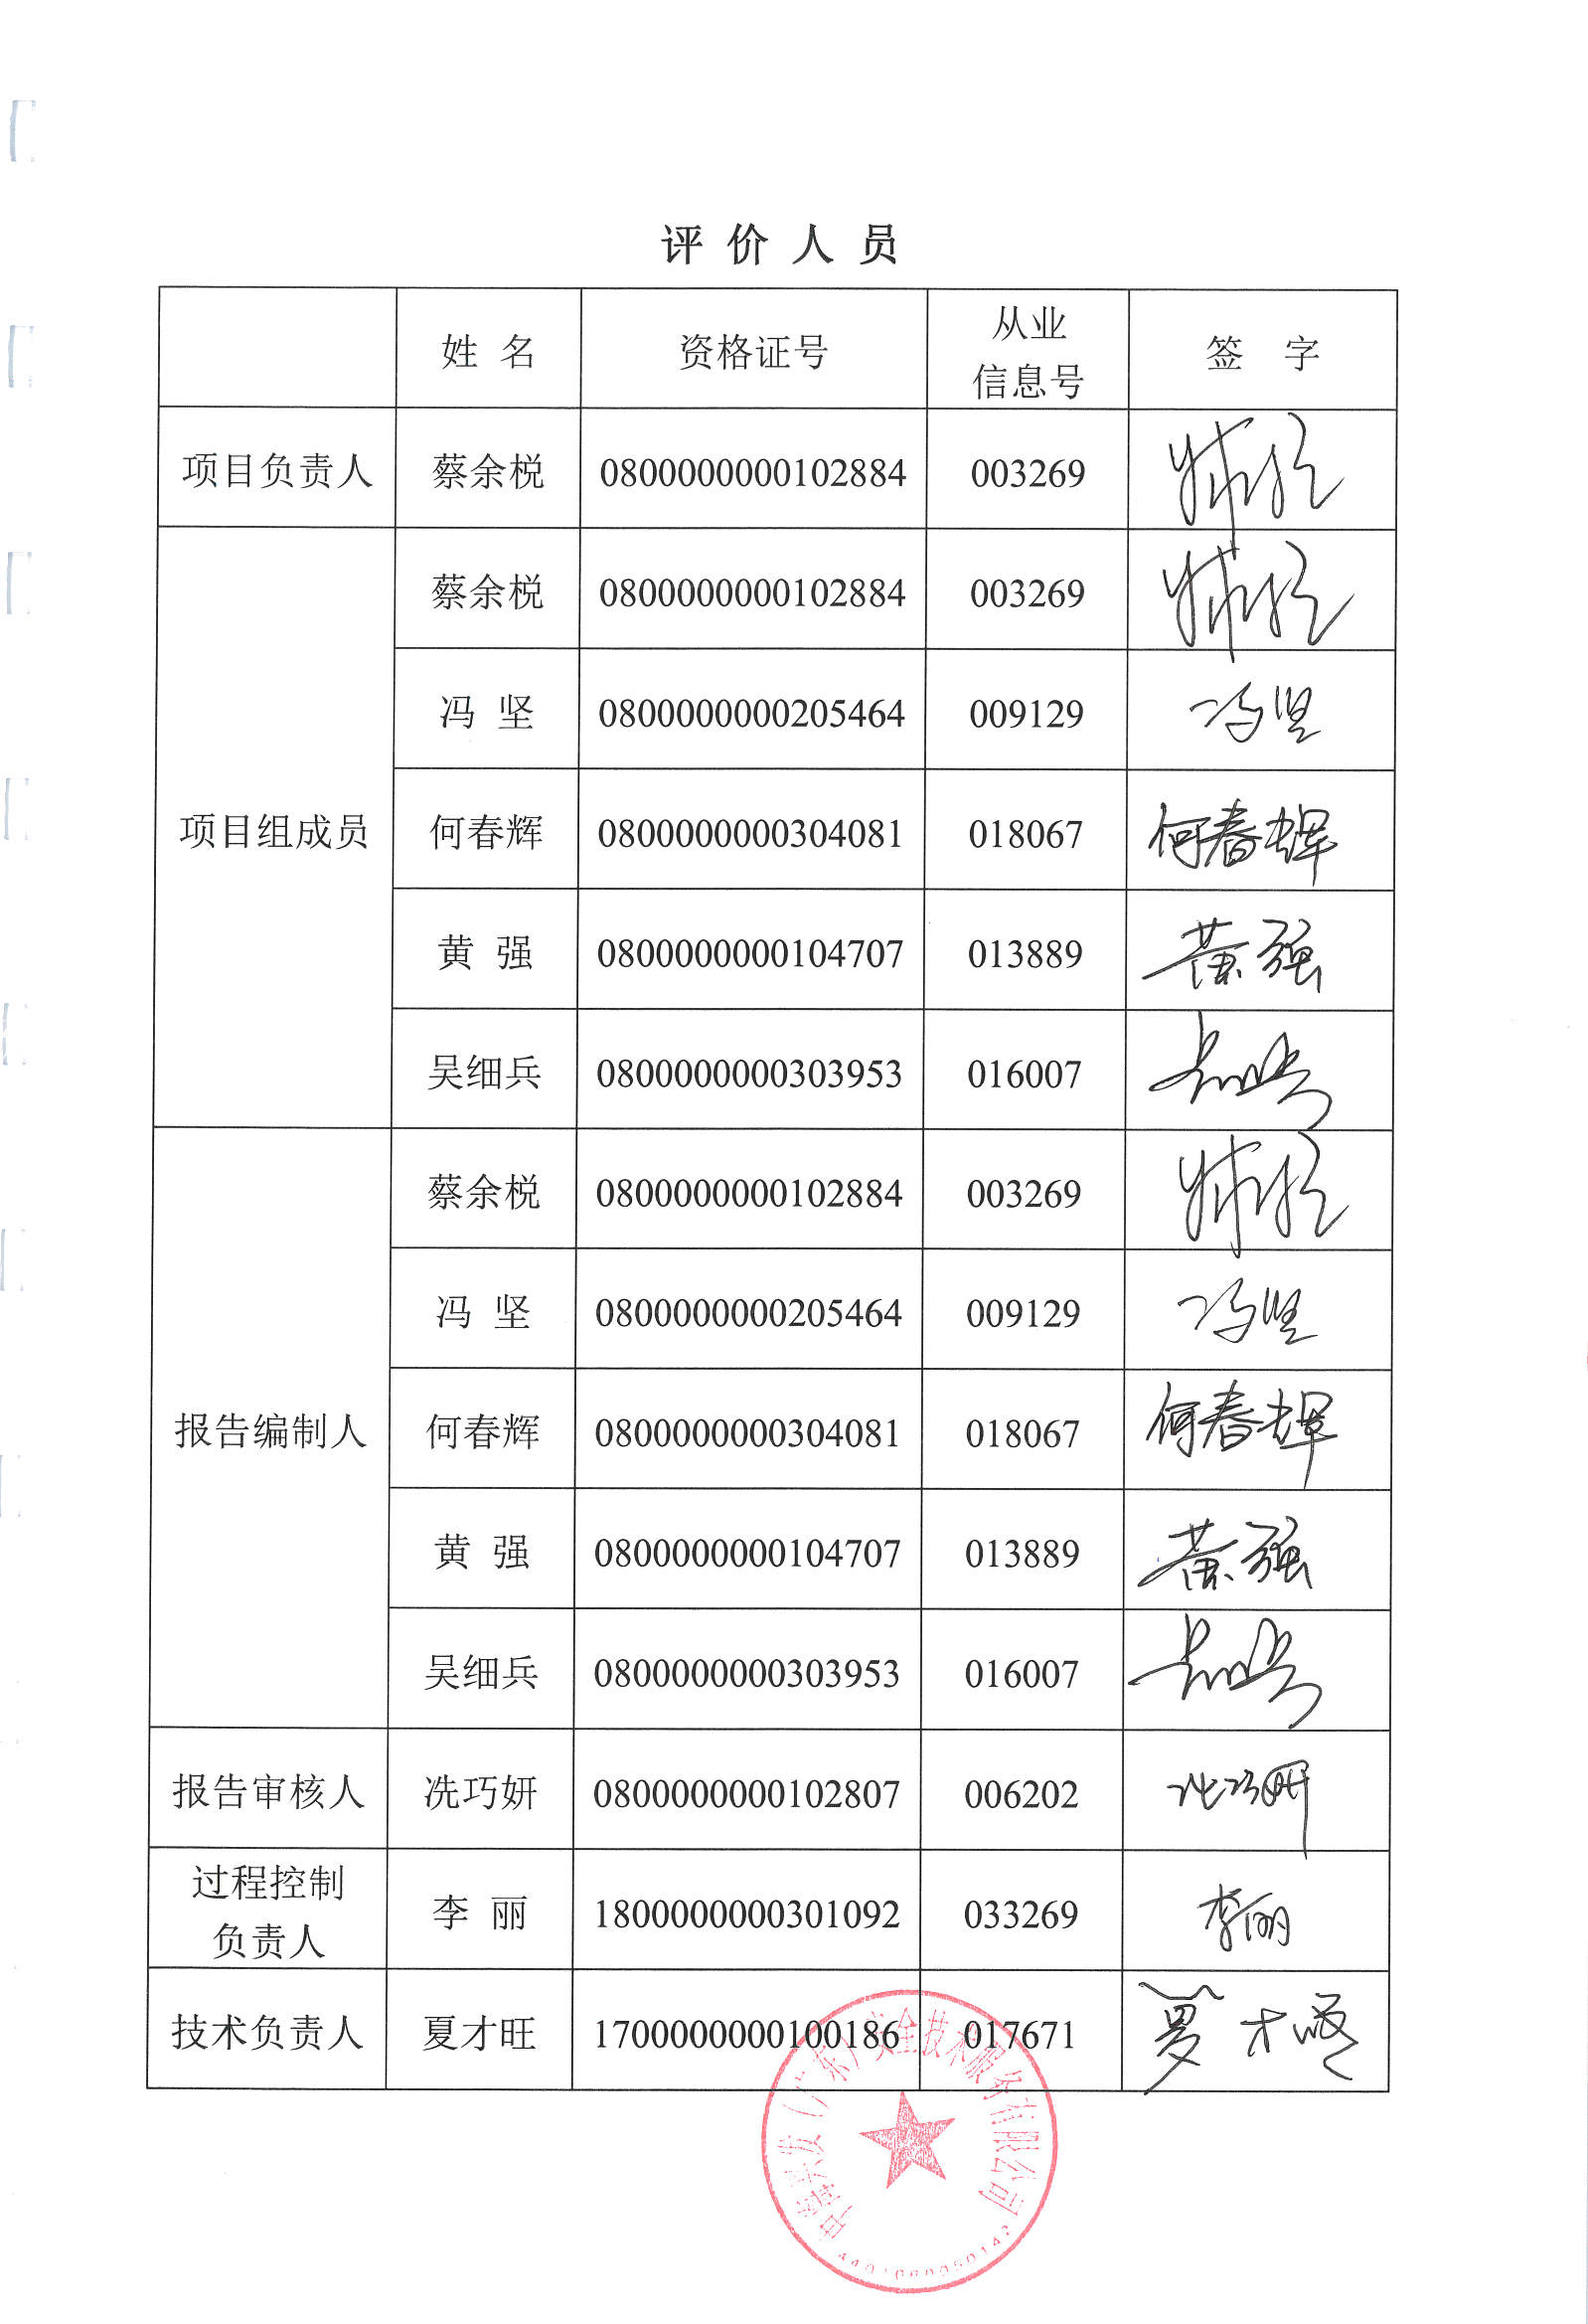 评 价 人 员
姓 名 资格证号 从业 签 字
信息号
项目负责人 蔡余棁 0800000000102884 003269
项目组成员 蔡余棁 0800000000102884 003269
冯 坚 0800000000205464 009129 冯坚
何春辉 0800000000304081 018067 何春辉
黄 强 0800000000104707 013889 黄强
吴细兵 0800000000303953 016007
报告编制人 蔡余棁 0800000000102884 003269
冯 坚 0800000000205464 009129 冯坚
何春辉 0800000000304081 018067 何春辉
黄 强 0800000000104707 013889 黄强
吴细兵 0800000000303953 016007
报告审核人 冼巧妍 0800000000102807 006202 冼巧妍
过程控制
负责人 李 丽 1800000000301092 033269 李丽
技术负责人 夏才旺 1700000000100186 017671 夏才旺
(广东)安全技术服务有限公司